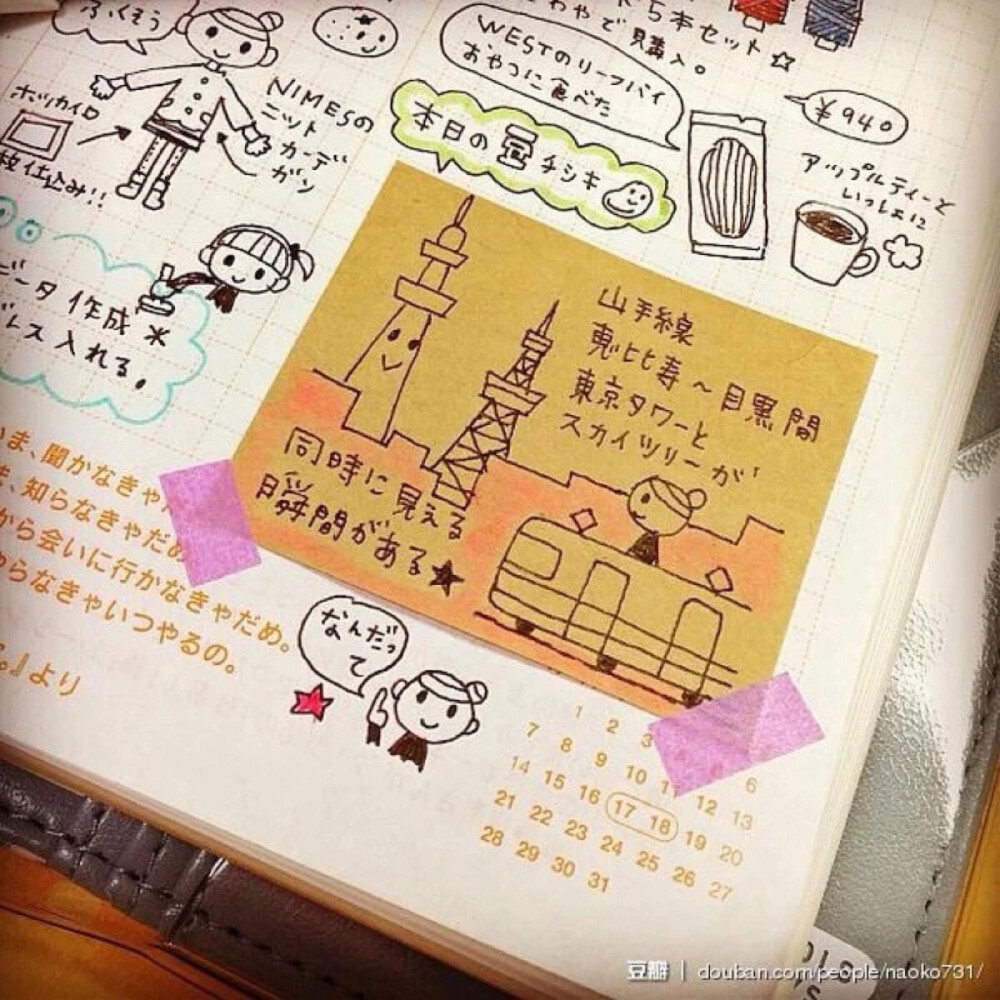 ふくそう
ホッカイロ
枚仕込み!!
NIMESの
ニット
カーデ
ガン
5本セット☆
わやで購入。
WESTのリーフパイ
おやつに食べた
¥940
アップルティーと
いっしょに
本日の豆チシキ
データ作成✕
ドレス入れる。
山手線
恵比寿〜目黒間
東京タワーと
スカイツリーが
同時に見える
瞬間がある★
いま、聞かなきゃ
、知らなきゃだめ
から会いに行かなきゃだめ。
やらなきゃいつやるの。
。』より
なんだっ
て
1 2 3 6
7 8 9 10 11 12 13
14 15 16 17 18 19 20
21 22 23 24 25 26 27
28 29 30 31
豆瓣 | douban.com/people/naoko731/